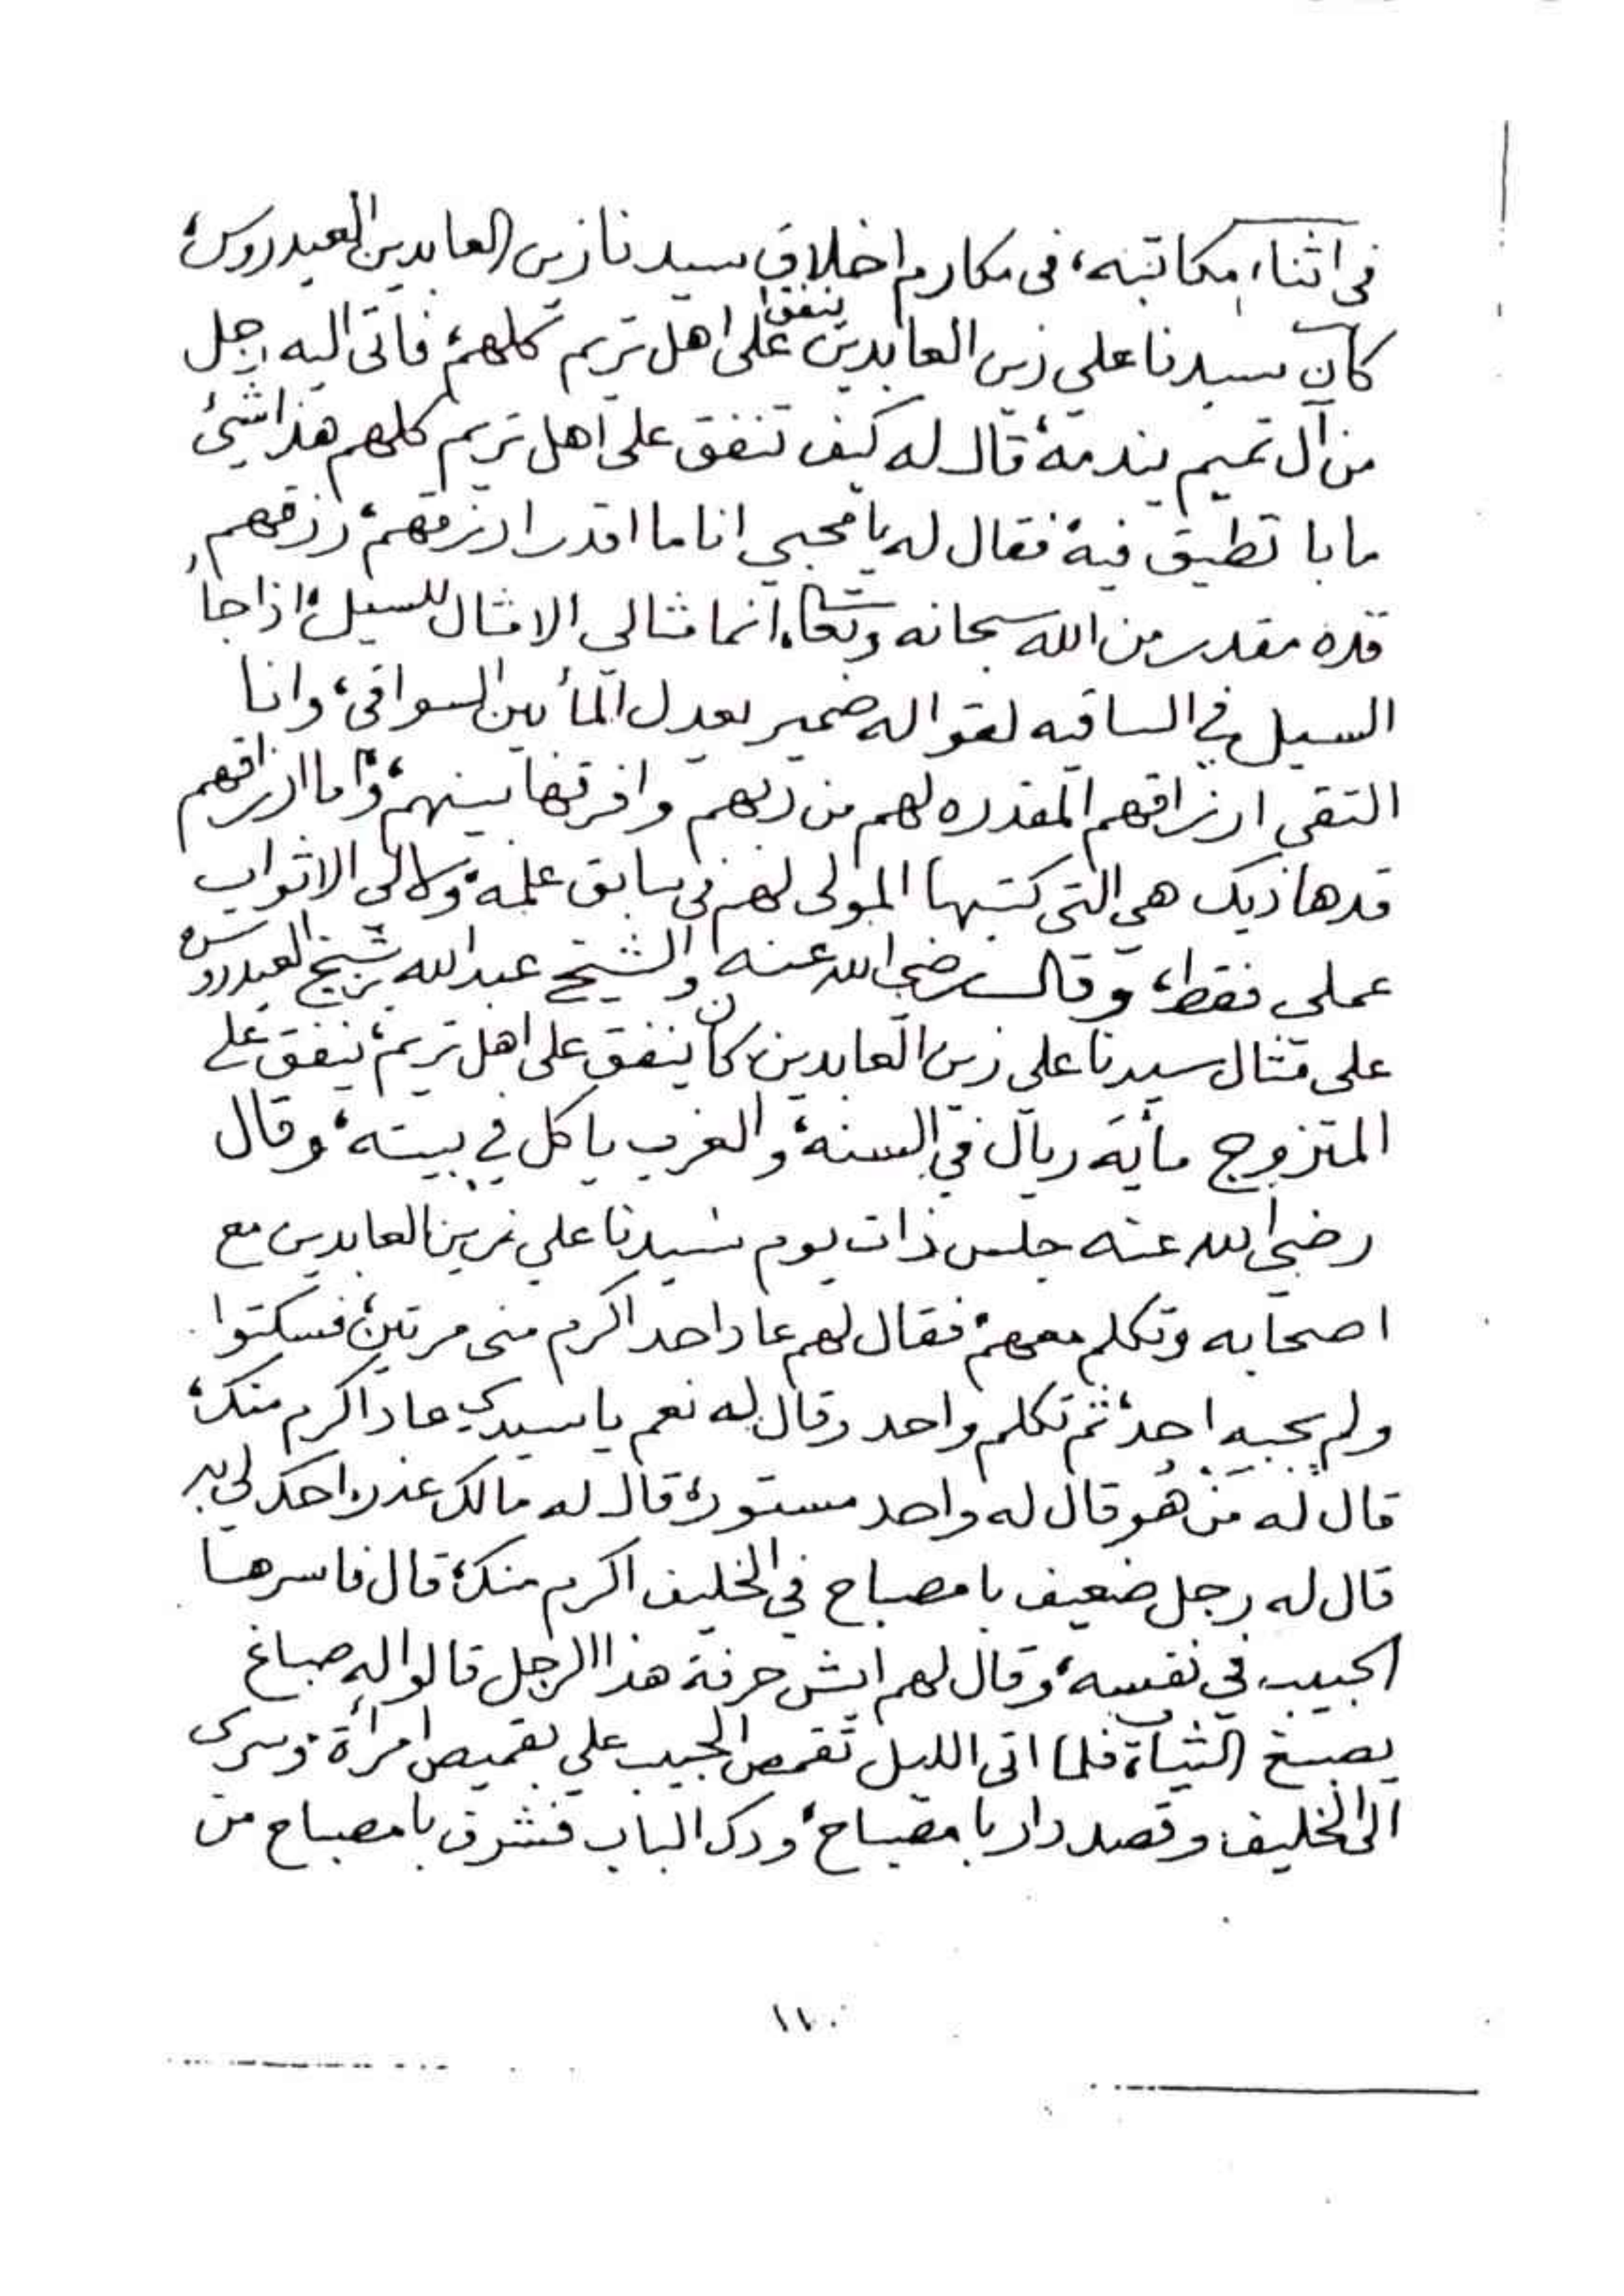 في اثناء مكاتبته، في مكارم اخلاق سيدنا زين العابدين العيدروس،
كان سيدنا علي زين العابدين ينفق على اهل تريم كلهم، فاتى اليه رجل
من آل تميم يندمه، قال له كيف تنفق على اهل تريم كلهم هذا شيئ
ما با تطيق فيه، فقال له يا محبي انا ما اقدر ارزقهم، رزقهم
قده مقدر من الله سبحانه وتعالى، انما مثالي الا مثال للسيل، اذا جاء
السيل في الساقيه لقوا له ضمير يعدل المأ بين السواقي، وانا
التقي ارزاقهم المقدره لهم من ربهم وافرقها بينهم، واما ارزاقهم
قدها ذيك هي التي كتبها المولى لهم في سابق علمه، ولا لي الا ثواب
عملي فقط، وقال رضي الله عنه والشيخ عبد الله بن شيخ العيدروس
على مثال سيدنا علي زين العابدين، كان ينفق على اهل تريم، ينفق على
المتزوج مأية ريال في السنه، والعزب ياكل في بيته، وقال
رضي الله عنه جلس ذات يوم سيدنا علي زين العابدين مع
اصحابه وتكلم معهم، فقال لهم عاد احد اكرم مني مرتين، فسكتوا
ولم يجبه احد، ثم تكلم واحد وقال له نعم يا سيدي عاد اكرم منك،
قال له من هو قال له واحد مستور، قال له مالك عذر احك لي به
قال له رجل ضعيف با مصباح في الخليف اكرم منك، قال فاسرها
الحبيب في نفسه، وقال لهم ايش حرفة هذا الرجل قالوا له صباغ
يصبغ الثياب، فلما اتى الليل تقمص الحبيب علي بقميص امرأة، وسرى
الى الخليف وقصد دار با مصباح، ودك الباب فشرف با مصباح من
١١٠